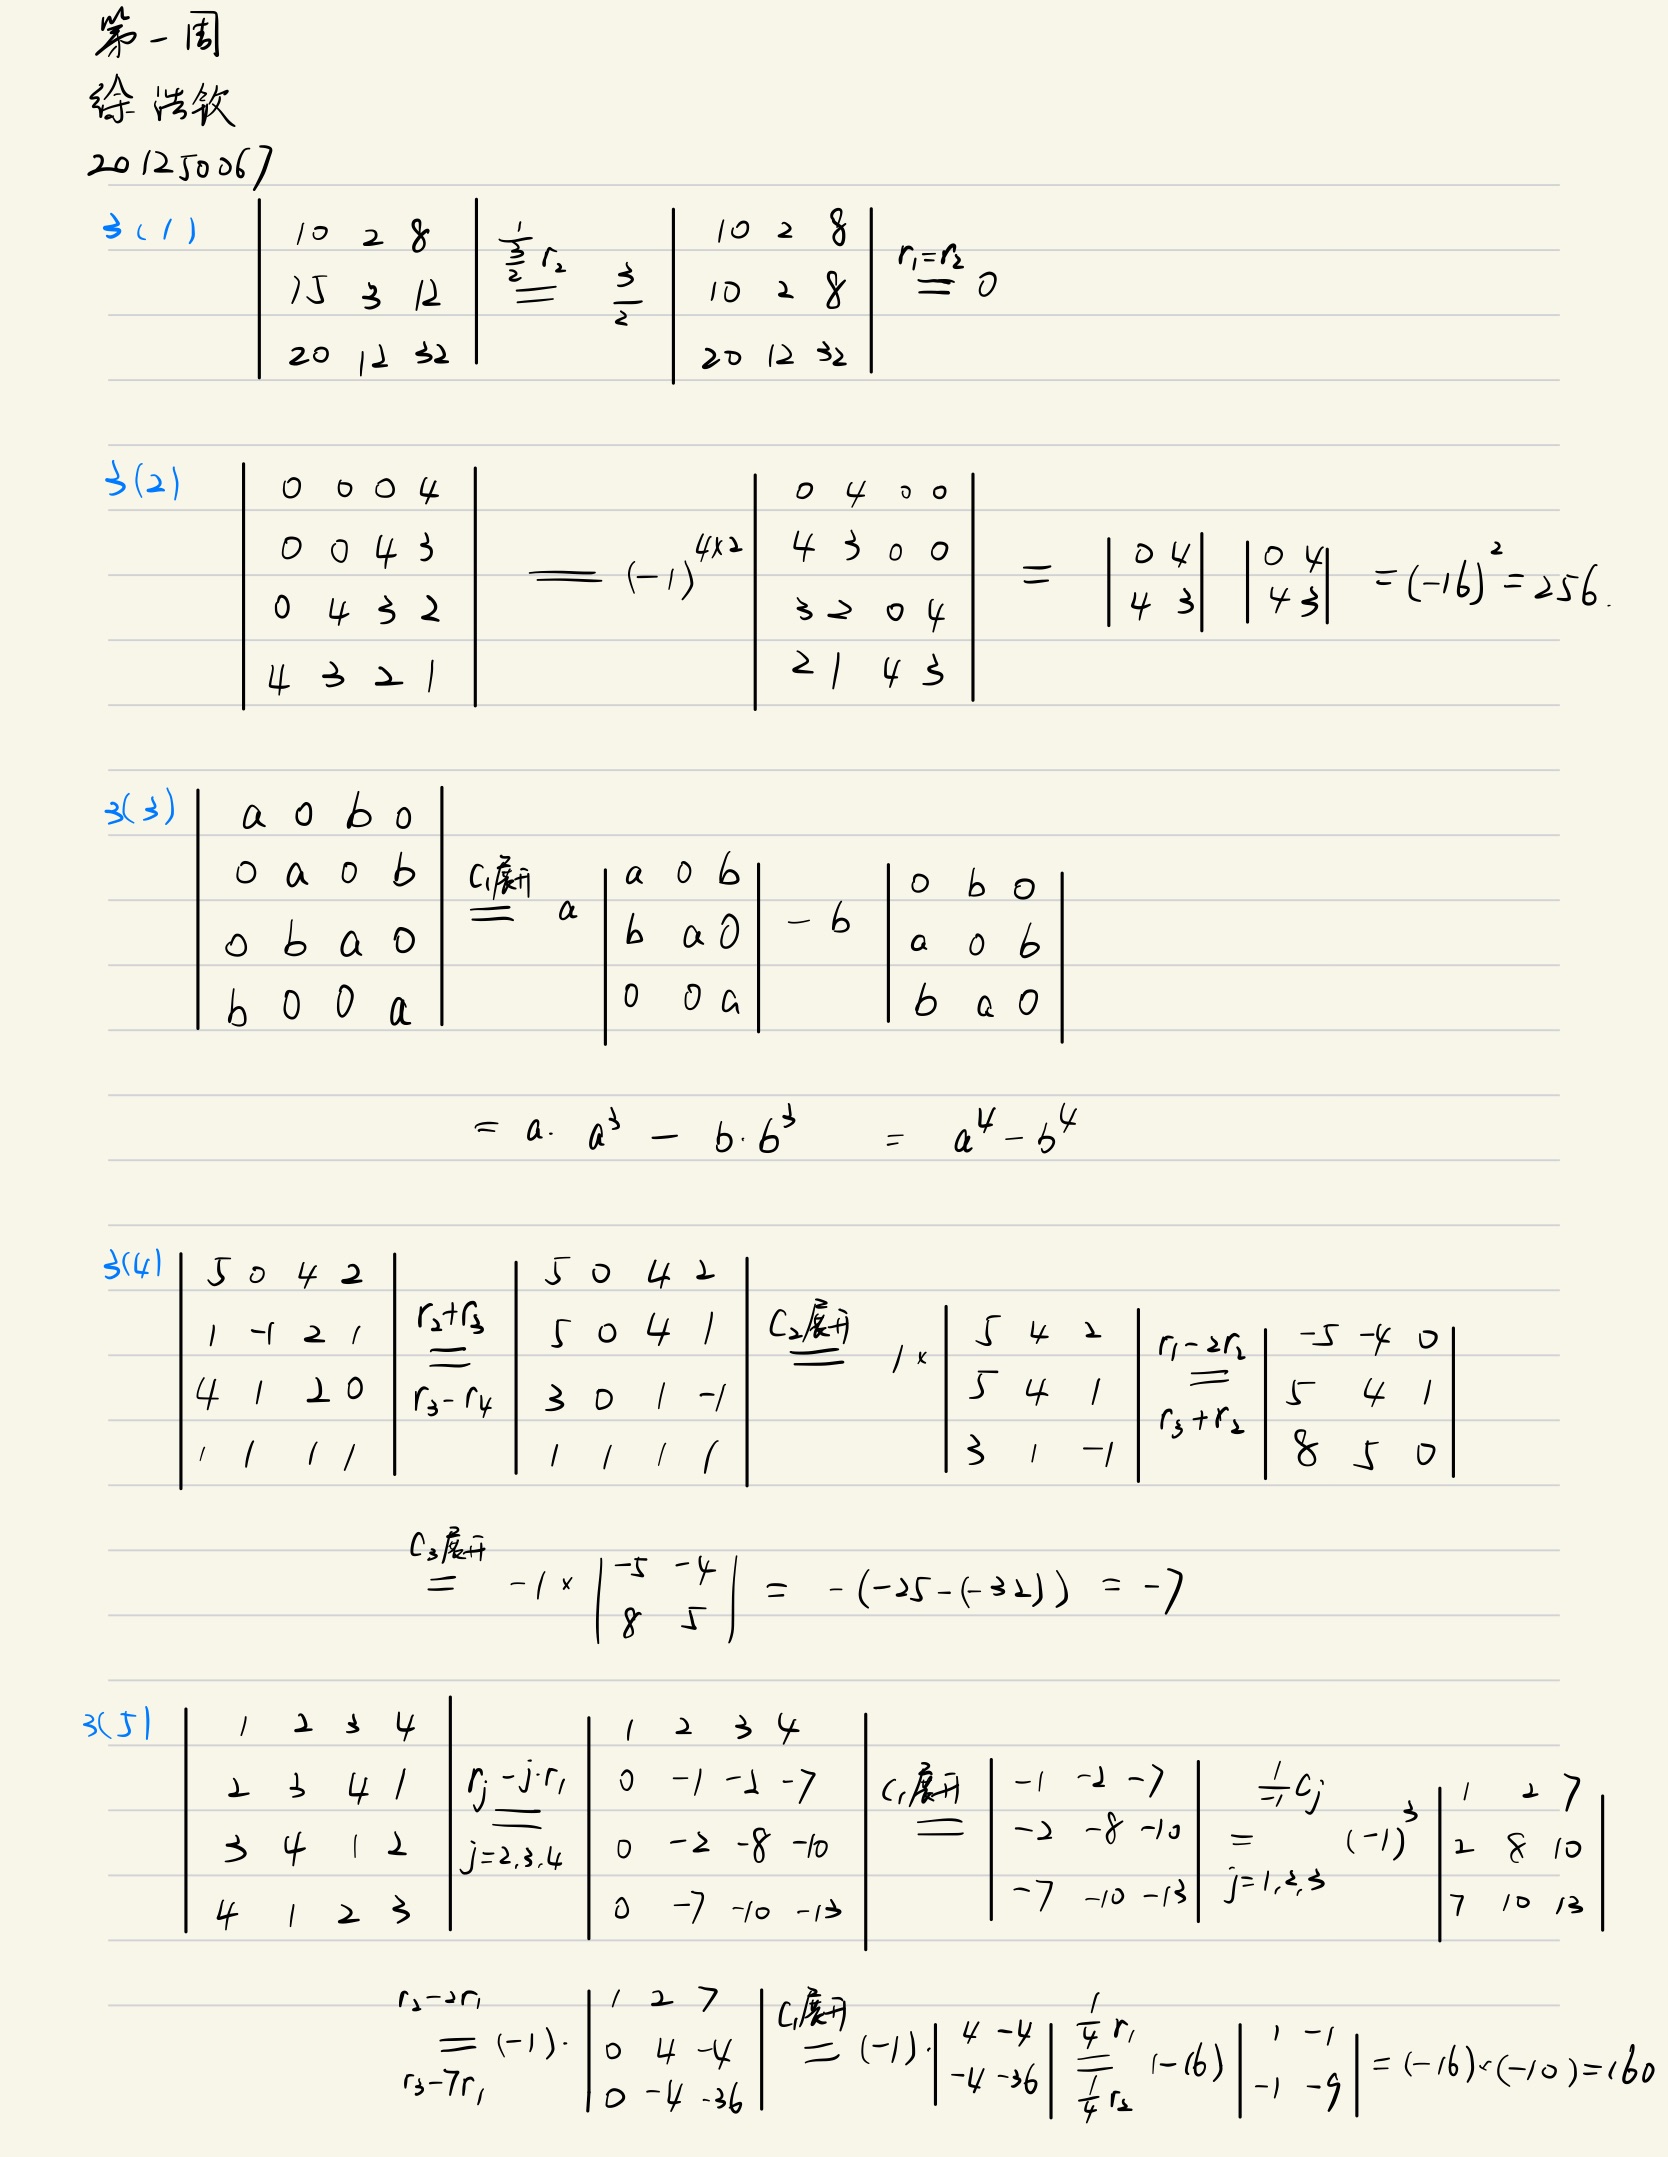 第一周
徐浩钦
201250067
3(1) | 10 2 8 | 15 3 12 | 20 12 32 | =(1/(3/2) r₂)= 3/2 | 10 2 8 | 10 2 8 | 20 12 32 | =(r₁=r₂)= 0
3(2) | 0 0 0 4 | 0 0 4 3 | 0 4 3 2 | 4 3 2 1 | = (-1)^(4×2) | 0 4 0 0 | 4 3 0 0 | 3 2 0 4 | 2 1 4 3 | = | 0 4 | 4 3 | | 0 4 | 4 3 | = (-16)² = 256.
3(3) | a 0 b 0 | 0 a 0 b | 0 b a 0 | b 0 0 a | =(C₁展开)= a | a 0 b | b a 0 | 0 0 a | - b | 0 b 0 | a 0 b | b a 0 |
= a· a³ - b·b³ = a⁴ - b⁴
3(4) | 5 0 4 2 | 1 -1 2 1 | 4 1 2 0 | 1 1 1 1 | =(r₂+r₃, r₃-r₄)= | 5 0 4 2 | 5 0 4 1 | 3 0 1 -1 | 1 1 1 1 | =(C₂展开)= 1× | 5 4 2 | 5 4 1 | 3 1 -1 | =(r₁-2r₂, r₃+r₂)= | -5 -4 0 | 5 4 1 | 8 5 0 |
=(C₃展开)= -1× | -5 -4 | 8 5 | = -(-25-(-32)) = -7
3(5) | 1 2 3 4 | 2 3 4 1 | 3 4 1 2 | 4 1 2 3 | =(rⱼ-j·r₁, j=2,3,4)= | 1 2 3 4 | 0 -1 -2 -7 | 0 -2 -8 -10 | 0 -7 -10 -13 | =(C₁展开)= | -1 -2 -7 | -2 -8 -10 | -7 -10 -13 | =(1/-1 Cⱼ, j=1,2,3)= (-1)³ | 1 2 7 | 2 8 10 | 7 10 13 |
=(r₂-2r₁, r₃-7r₁)= (-1)· | 1 2 7 | 0 4 -4 | 0 -4 -36 | =(C₁展开)= (-1)· | 4 -4 | -4 -36 | =(1/4 r₁, 1/4 r₂)= (-16) | 1 -1 | -1 -9 | = (-16)×(-10)=160